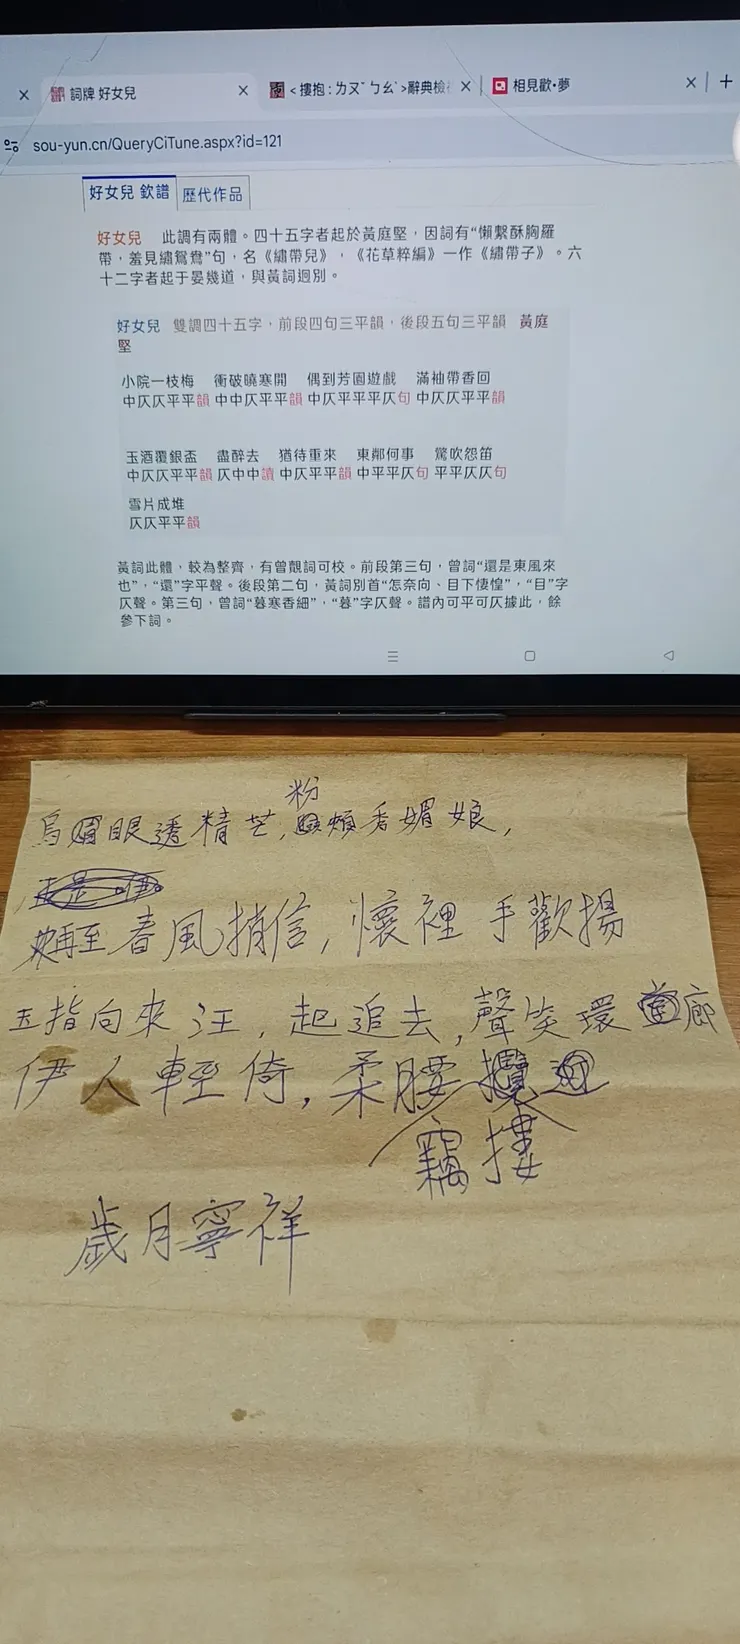 詞牌 好女兒
<摟抱 : ㄌㄡˇ ㄅㄠˋ>辭典檢
相見歡•夢
sou-yun.cn/QueryCiTune.aspx?id=121
好女兒 欽譜
歷代作品
好女兒 此調有兩體。四十五字者起於黃庭堅，因詞有“懶繫酥胸羅
帶，羞見繡鴛鴦”句，名《繡帶兒》，《花草粹編》一作《繡帶子》。六
十二字者起于晏幾道，與黃詞迥別。
好女兒 雙調四十五字，前段四句三平韻，後段五句三平韻 黃庭
堅
小院一枝梅 衝破曉寒開 偶到芳園遊戲 滿袖帶香回
中仄仄平平韻 中中仄平平韻 中仄平平平仄句 中仄仄平平韻
玉酒覆銀盃 盡醉去 猶待重來 東鄰何事 驚吹怨笛
中仄仄平平韻 仄中中讀 中仄平平韻 中平平仄句 平平仄仄句
雪片成堆
仄仄平平韻
黃詞此體，較為整齊，有曾覿詞可校。前段第三句，曾詞“還是東風來
也”，“還”字平聲。後段第二句，黃詞別首“怎奈向、目下悽惶”，“目”字
仄聲。第三句，曾詞“暮寒香細”，“暮”字仄聲。譜內可平可仄據此，餘
參下詞。
粉
烏眼透精芒,頰香媚娘,
春風捎信,懷裡手歡揚
玉指向來汪,起追去,聲笑環廊
伊人輕倚,柔腰
竊摟
歲月寧祥